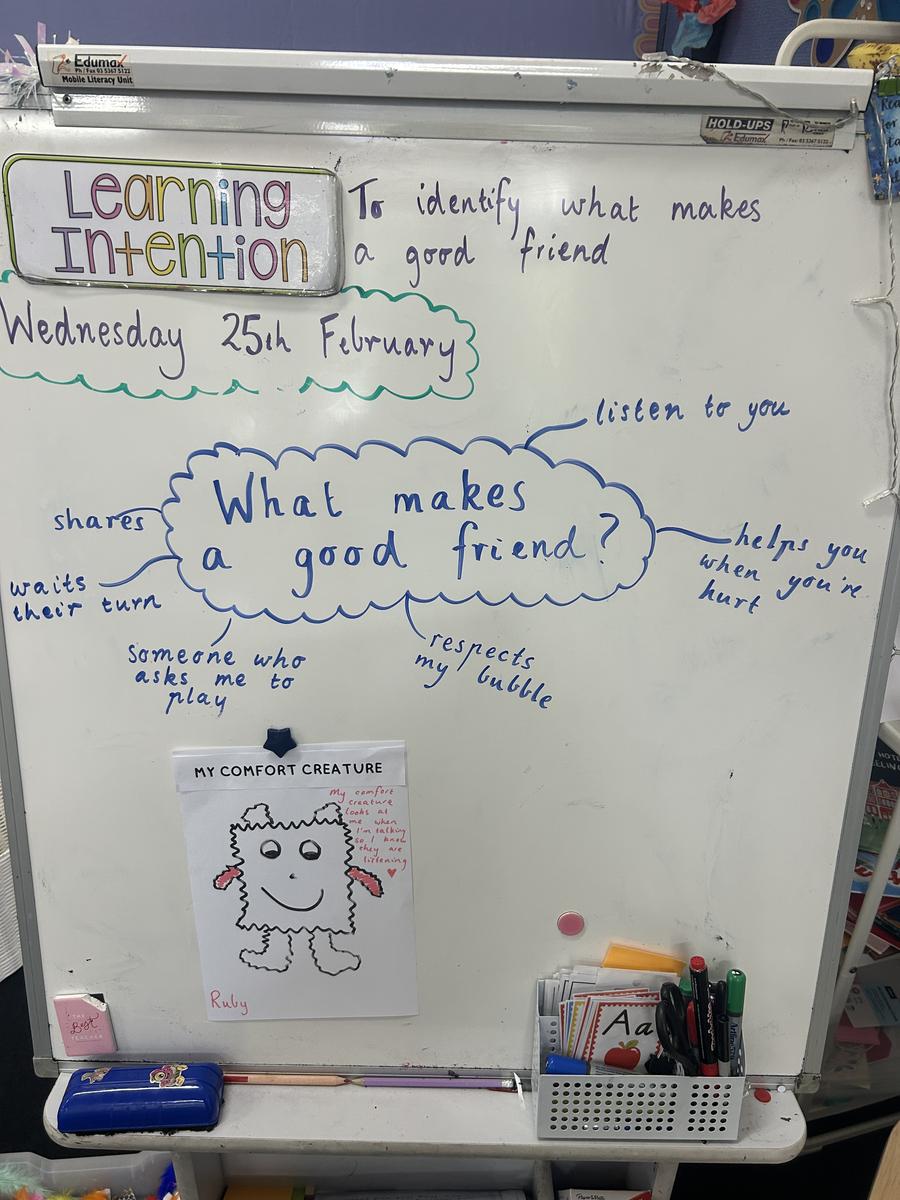 Edumax
Ph / Fax 03 5367 5122
Mobile Literacy Unit
HOLD-UPS
Edumax
Ph / Fax 03 5367 5122
Learning
Intention
To identify what makes
a good friend
Wednesday 25th February
listen to you
What makes
a good friend?
shares
helps you
when you're
hurt
waits
their turn
someone who
asks me to
play
respects
my bubble
MY COMFORT CREATURE
My comfort
creature
looks at
me when
I'm talking
so I know
they are
listening
Ruby
THE
Best
TEACHER
Aa